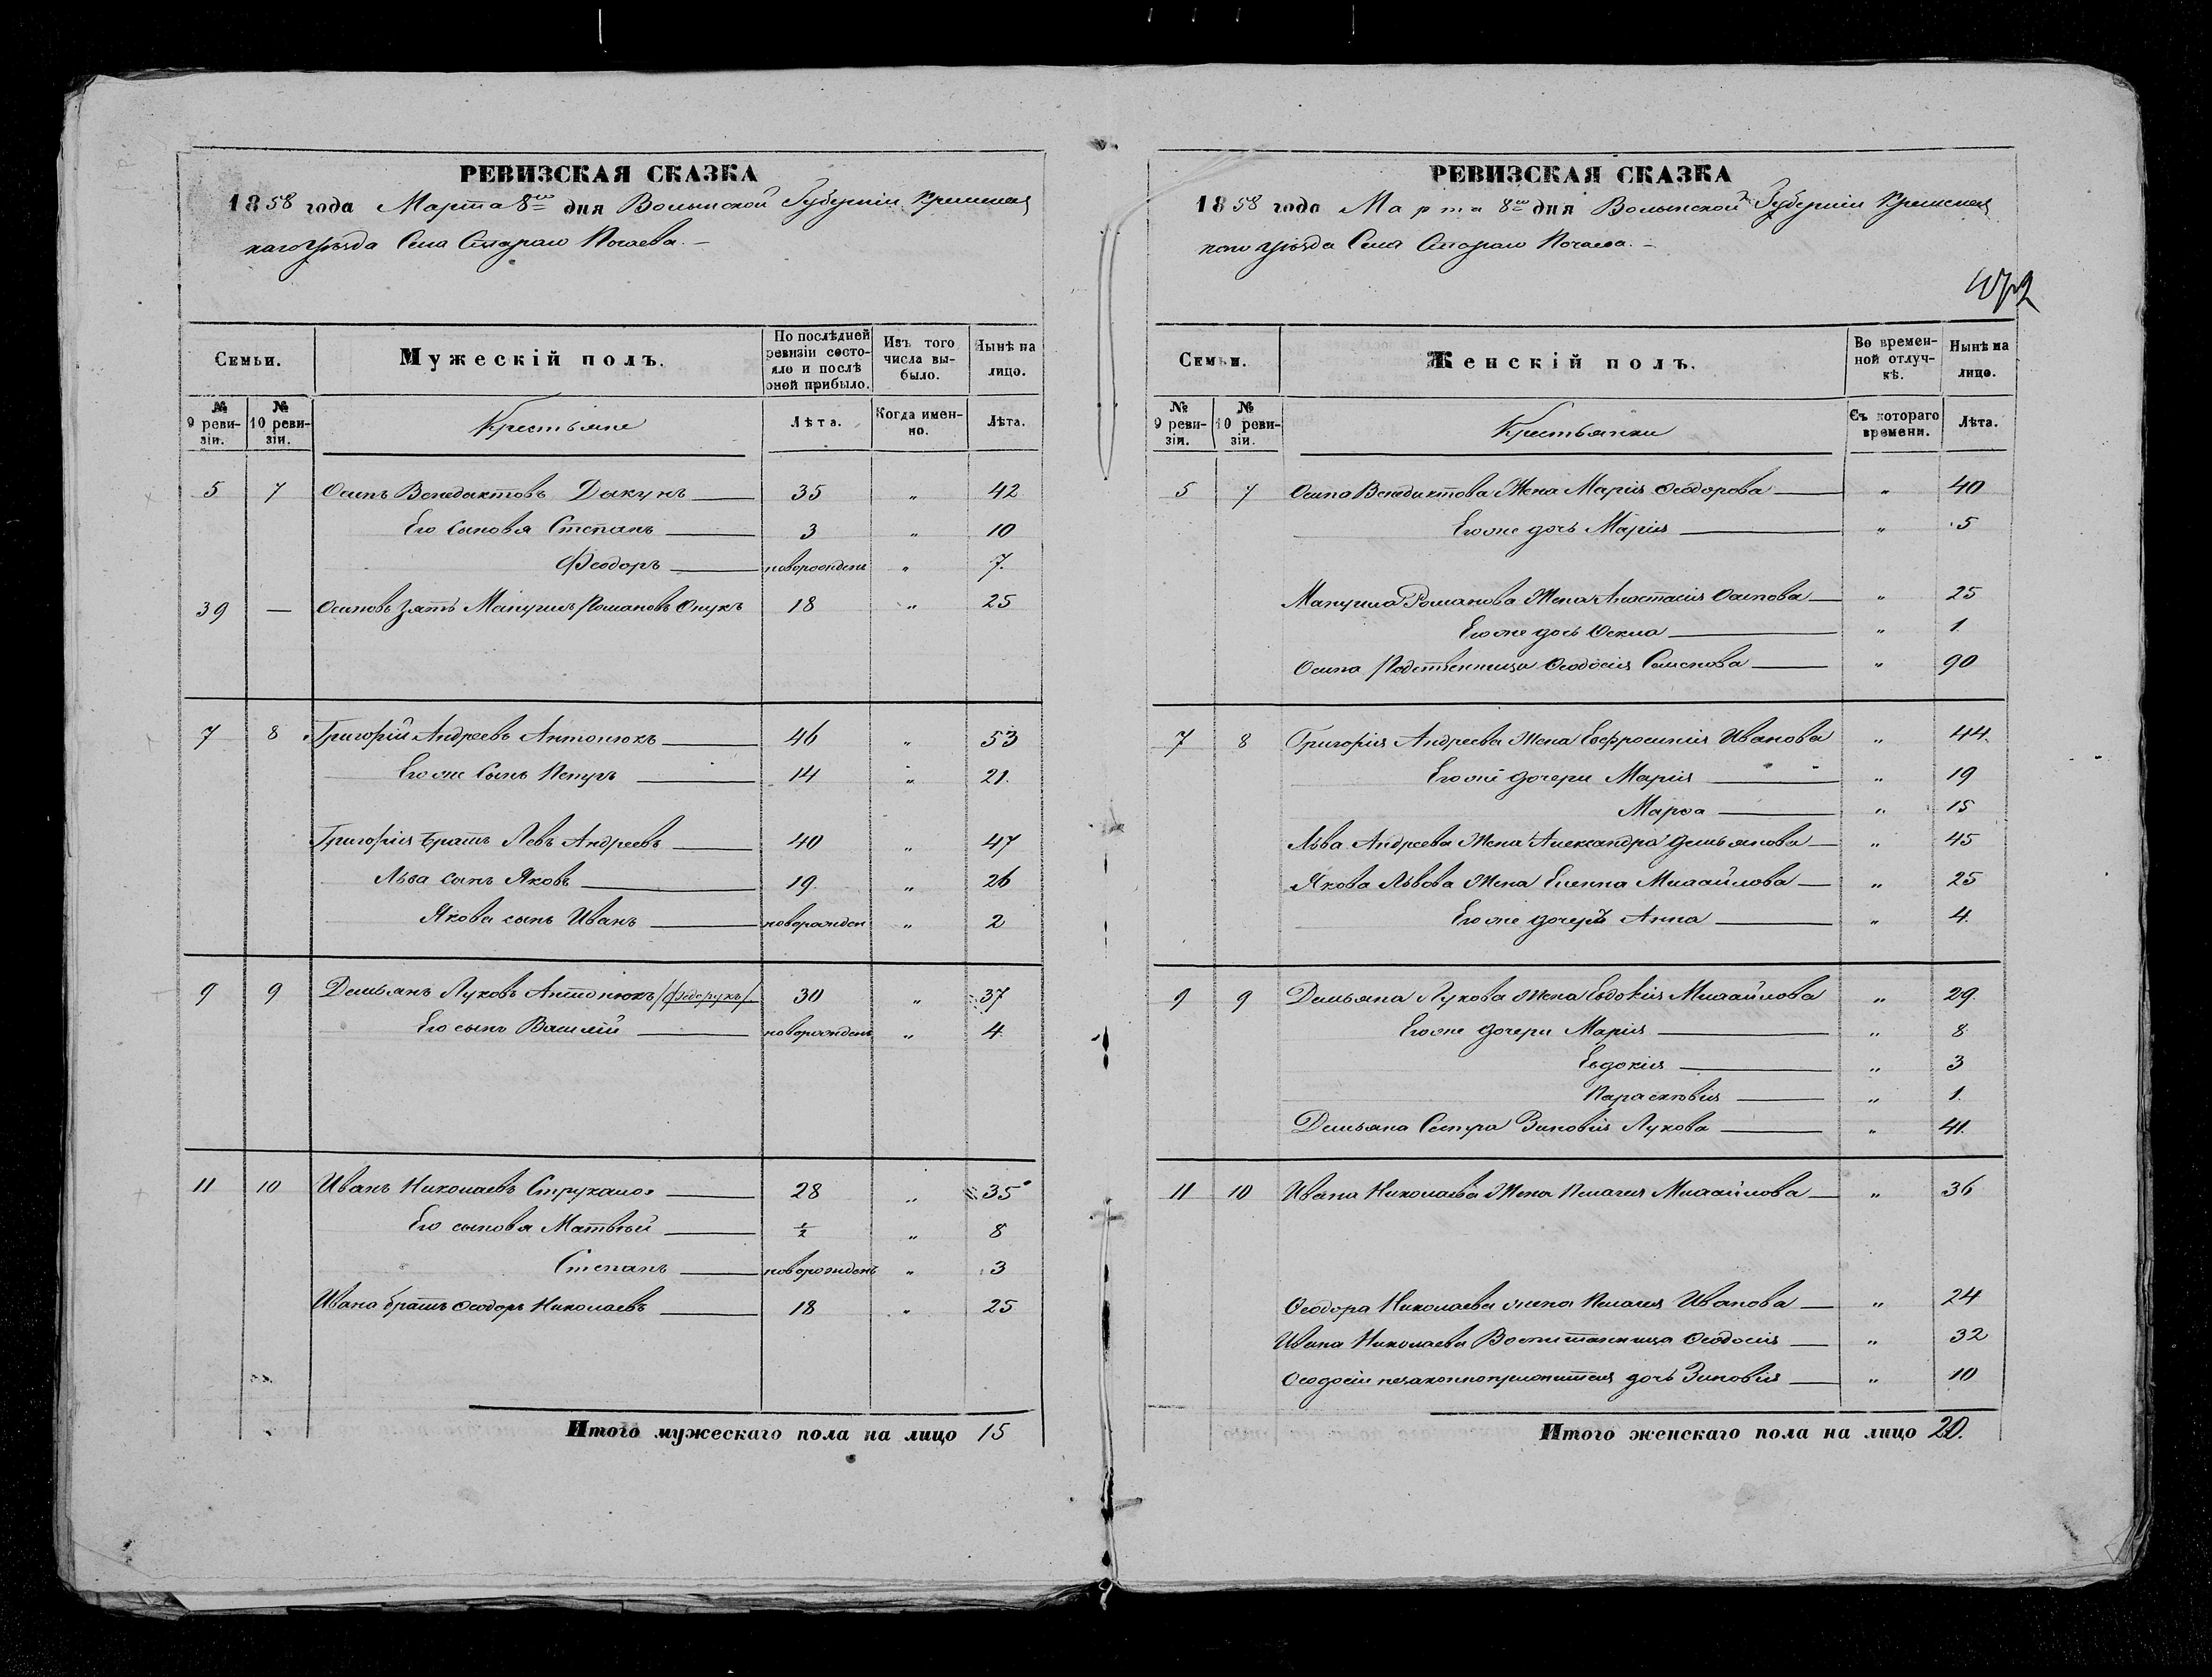 РЕВИЗСКАЯ СКАЗКА
1858 года Марта 8го дня Волынской Губерніи Кременец
каго Уѣзда Села Стараго Почаева.
Семьи.
Мужескій полъ.
По послѣдней ревизіи состояло и послѣ оной прибыло.
Изъ того числа выбыло.
Нынѣ на лицо.
№ 9 ревизіи.
№ 10 ревизіи.
Крестьяне
Лѣта.
Когда именно.
Лѣта.
5 7 Осипъ Венедиктовъ Дякунъ 35 " 42
Его сыновя Степанъ 3 " 10
Феодоръ новорожденъ " 7.
39 — Осиповъ зять Мануилъ Романовъ Онукъ 18 " 25
7 8 Григорій Андреевъ Антонюкъ 46 " 53
Его же сынъ Петръ 14 " 21.
Григорія братъ Левъ Андреевъ 40 " 47
Льва сынъ Яковъ 19. " 26
Якова сынъ Иванъ новорожден " 2
9 9 Демьянъ Луковъ Антонюкъ /Федорукъ/ 30 " 37
Его сынъ Василій новорожденъ " 4
11 10 Иванъ Николаевъ 28 " 35
Его сыновя Матвѣй ½ " 8
Степанъ новорожденъ " 3
Ивана братъ Ѳеодоръ Николаевъ 18 " 25
Итого мужескаго пола на лицо 15
РЕВИЗСКАЯ СКАЗКА
1858 года Марта 8го дня Волынской Губерніи Кременец
каго Уѣзда Села Стараго Почаева.
472
Семьи.
Женскій полъ.
Во временной отлучкѣ.
Нынѣ на лицо.
№ 9 ревизіи.
№ 10 ревизіи.
Крестьянки
Съ котораго времени.
Лѣта.
5 7 Осипа Венедиктова Жена Марія Ѳеодорова " 40
Его же дочь Марія " 5
Мануила Романова Жена Анастасія Осипова " 25
Его же дочь " 1.
Осипа Родственница Ѳеодосія Семенова " 90
7 8 Григорія Андреева Жена Евфросинія Иванова " 44.
Его же дочери Марія " 19
Марѳа " 15
Льва Андреева Жена Александра Демьянова " 45
Якова Львова Жена Еленна Михайлова " 25
Его же дочерь Анна " 4.
9 9 Демьяна Лукова Жена Евдокія Михайлова " 29.
Его же дочери Марія " 8
Евдокія " 3
Параскевія " 1.
Демьяна Сестра Зиновія Лукова " 41.
11 10 Ивана Николаева Жена Пелагея Михайлова " 36
Ѳеодора Николаева жена Пелагея Иванова " 24
Ивана Николаева Воспитанница Ѳеодосія " 32
Ѳеодосіи незаконноприжитая дочь Зиновія " 10
Итого женскаго пола на лицо 20.